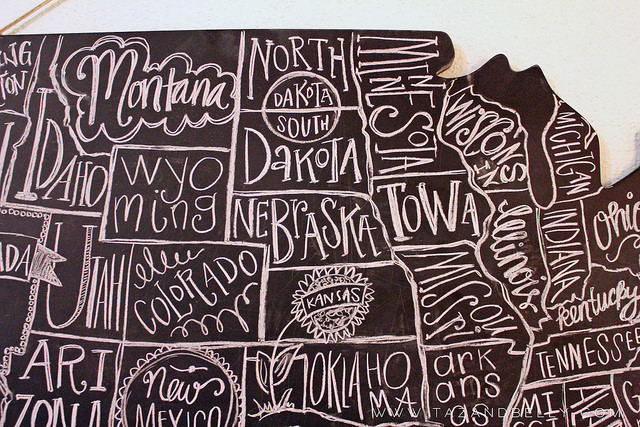 NG
TON
IDAHO
Montana
NORTH
DAKOTA
SOUTH
DAKOTA
MINNE
SOTA
WISCONS
IN
MICHIGAN
WYO
ming
NEBRASKA
IOWA
Illinois
INDIANA
Ohio
ADA
UTAH
COLORADO
KANSAS
MISSOU
RI
Kentucky
ARI
ZONA
New
MEXICO
OKLAHO
MA
ark
ans
as
TENNESSEE
MI
WWW.TAZANDBELLY.COM